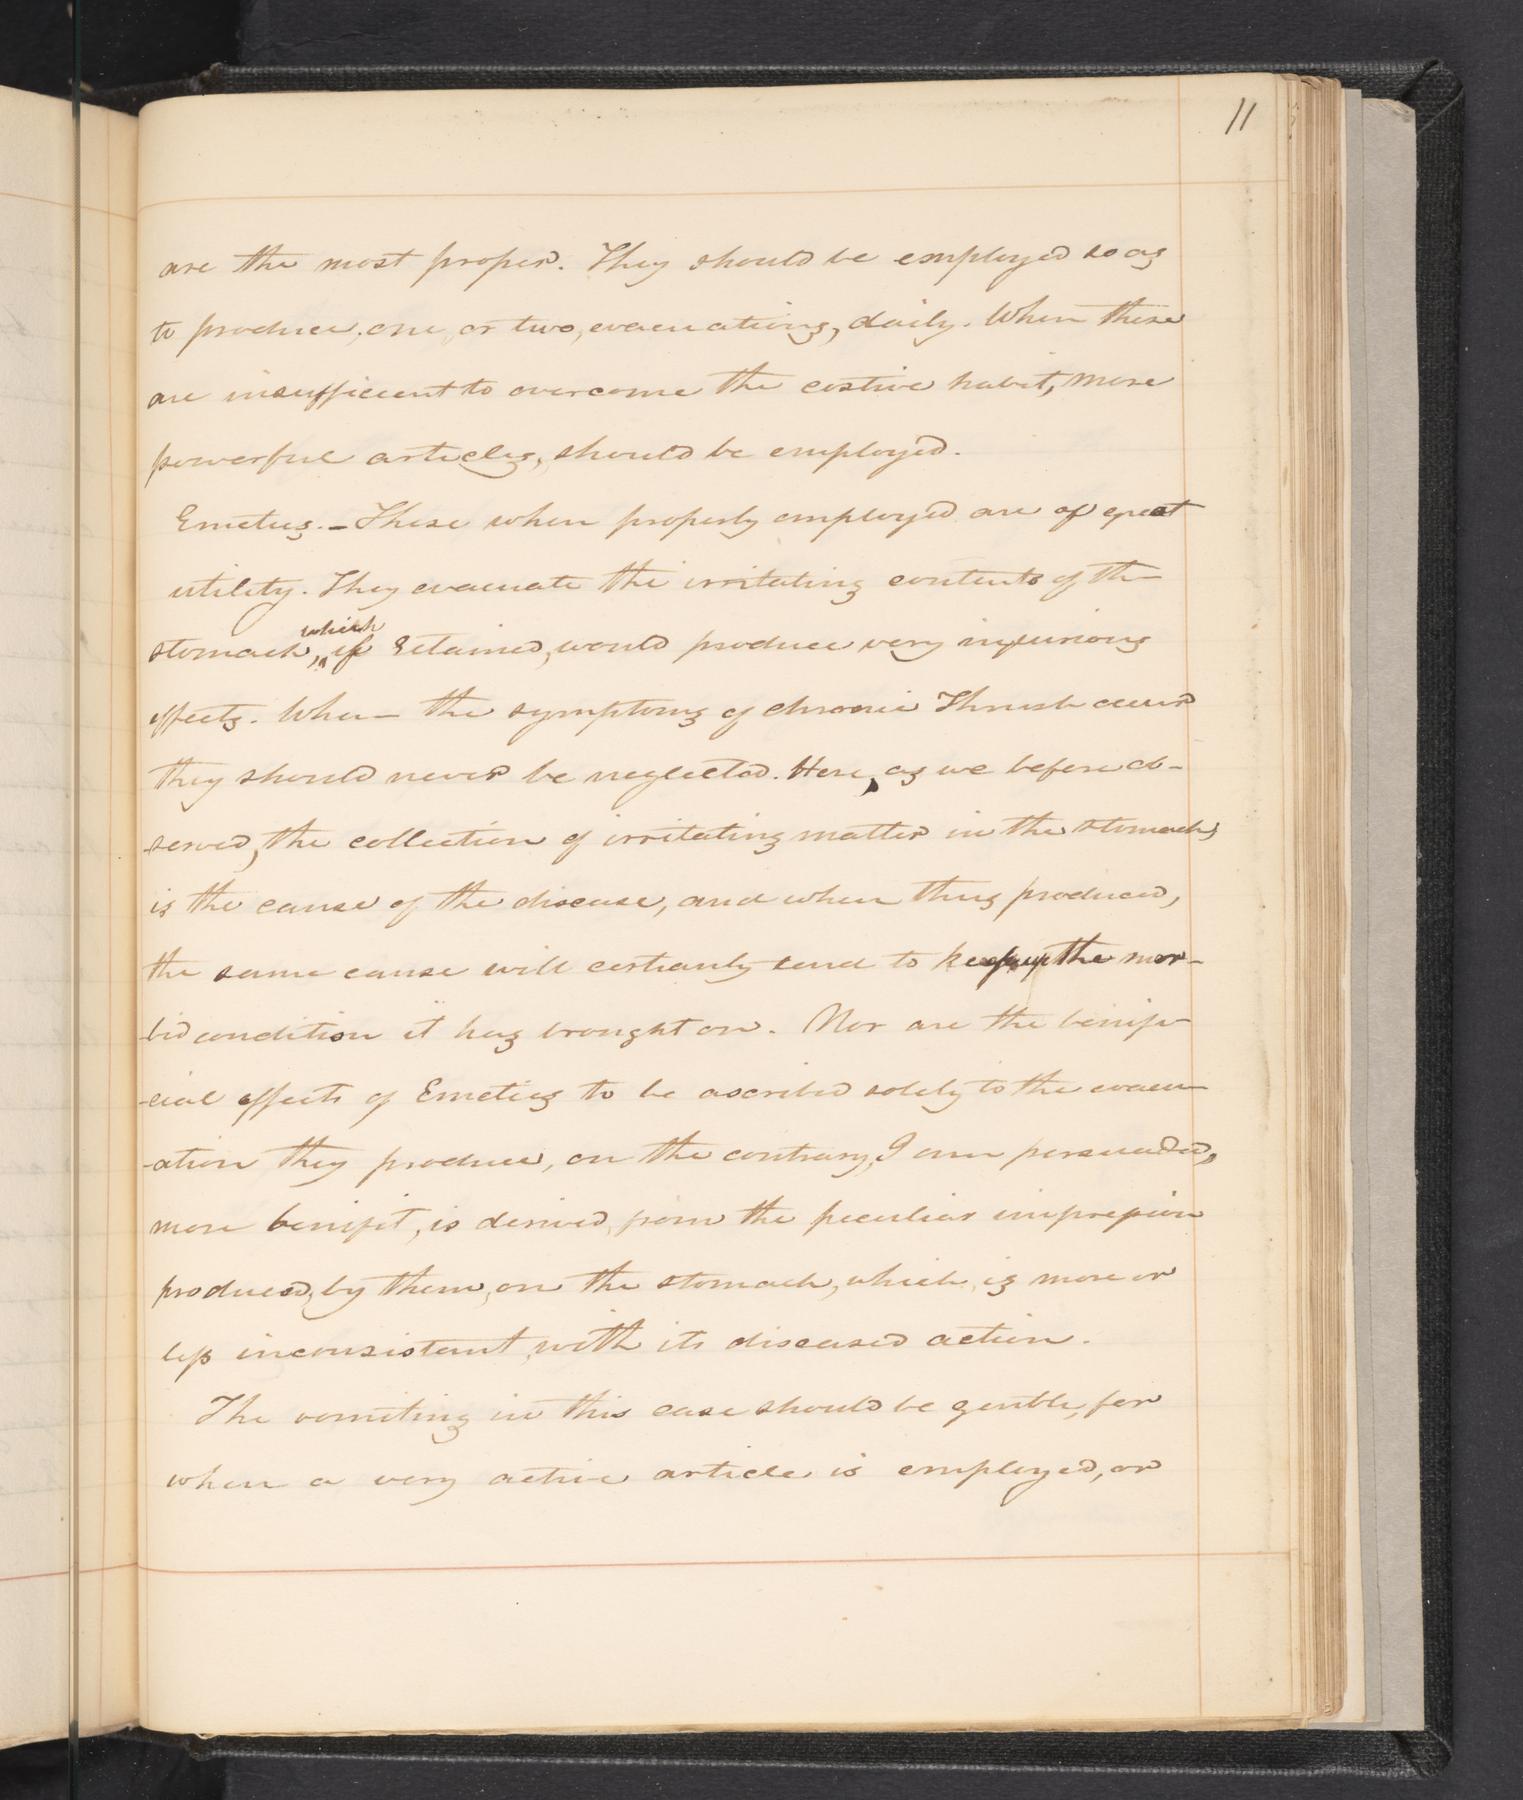 11
are the most proper. They should be employed so as
to produce, one, or two, evacuations, daily. When these
are insufficient to overcome the costive habit, more
powerful articles, should be employed.
Emetics. - These when properly employed are of great
utility. They evacuate the irritating contents of the
which
stomach, if retained, would produce very injurious
effects. When the symptoms of chronic Thrush occur
they should never be neglected. Here, as we before ob-
served, the collection of irritating matter in the stomach,
is the cause of the disease, and when thus produced,
the same cause will certianly tend to keep up the mor-
bid condition it has brought on. Nor are the benifi-
-cial effects of Emetics to be ascribed solely to the evacu-
-ation they produce, on the contrary, I am persuaded,
more benifit, is derived, from the peculiar impression
produced, by them, on the stomach, which, is more or
less inconsistant, with its diseased action.
The vomiting in this case should be gentle, for
when a very active article is employed, or